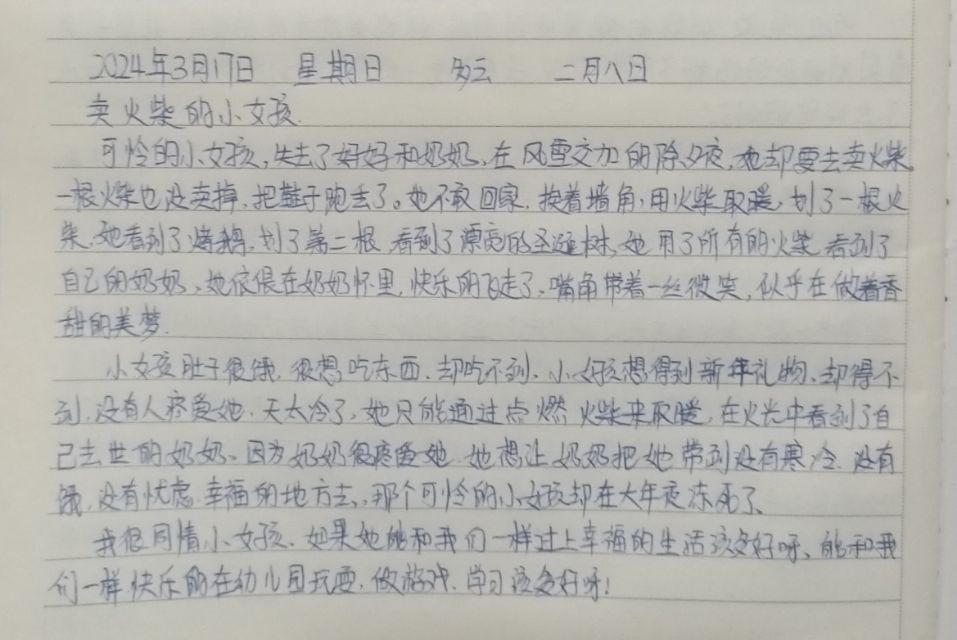 2024年3月17日 星期日 多云 二月八日
卖火柴的小女孩.
可怜的小女孩,失去了妈妈和奶奶,在风雪交加的除夕夜,她却要去卖火柴
一根火柴也没卖掉,把鞋子跑丢了。她不敢回家.挨着墙角,用火柴取暖,划了一根火
柴.她看到了烤鹅.划了第二根.看到了漂亮的圣诞树,她用了所有的火柴.看到了
自己的奶奶、她依偎在奶奶怀里.快乐的飞走了、嘴角带着一丝微笑,似乎在做着香
甜的美梦.
小女孩肚子很饿.很想吃东西.却吃不到、小女孩想得到新年礼物、却得不
到,没有人疼爱她.天太冷了,她只能通过点燃火柴来取暖,在火光中看到了自
己去世的奶奶、因为奶奶很疼爱她.她想让奶奶把她带到没有寒冷.没有
饿,没有忧虑.幸福的地方去、那个可怜的小女孩却在大年夜冻死了、
我很同情小女孩、如果她能和我们一样过上幸福的生活该多好呀、能和我
们一样快乐的在幼儿园玩耍.做游戏.学习该多好呀!